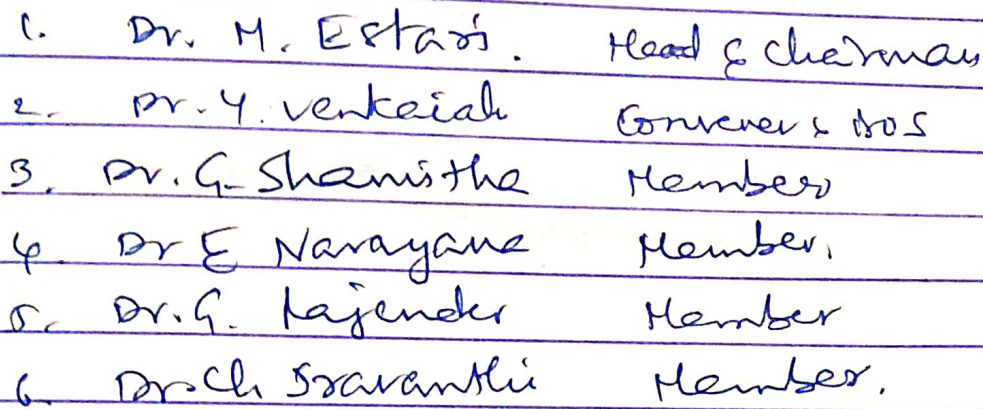 1. Dr. M. Estari. Head & Chairman
2. Dr. Y. Venkaiah Convener & BOS
3. Dr. G. Shamitha Member
4. Dr E Narayana Member.
5. Dr. G. Rajender Member
6. Dr. Ch Sravanthi Member.